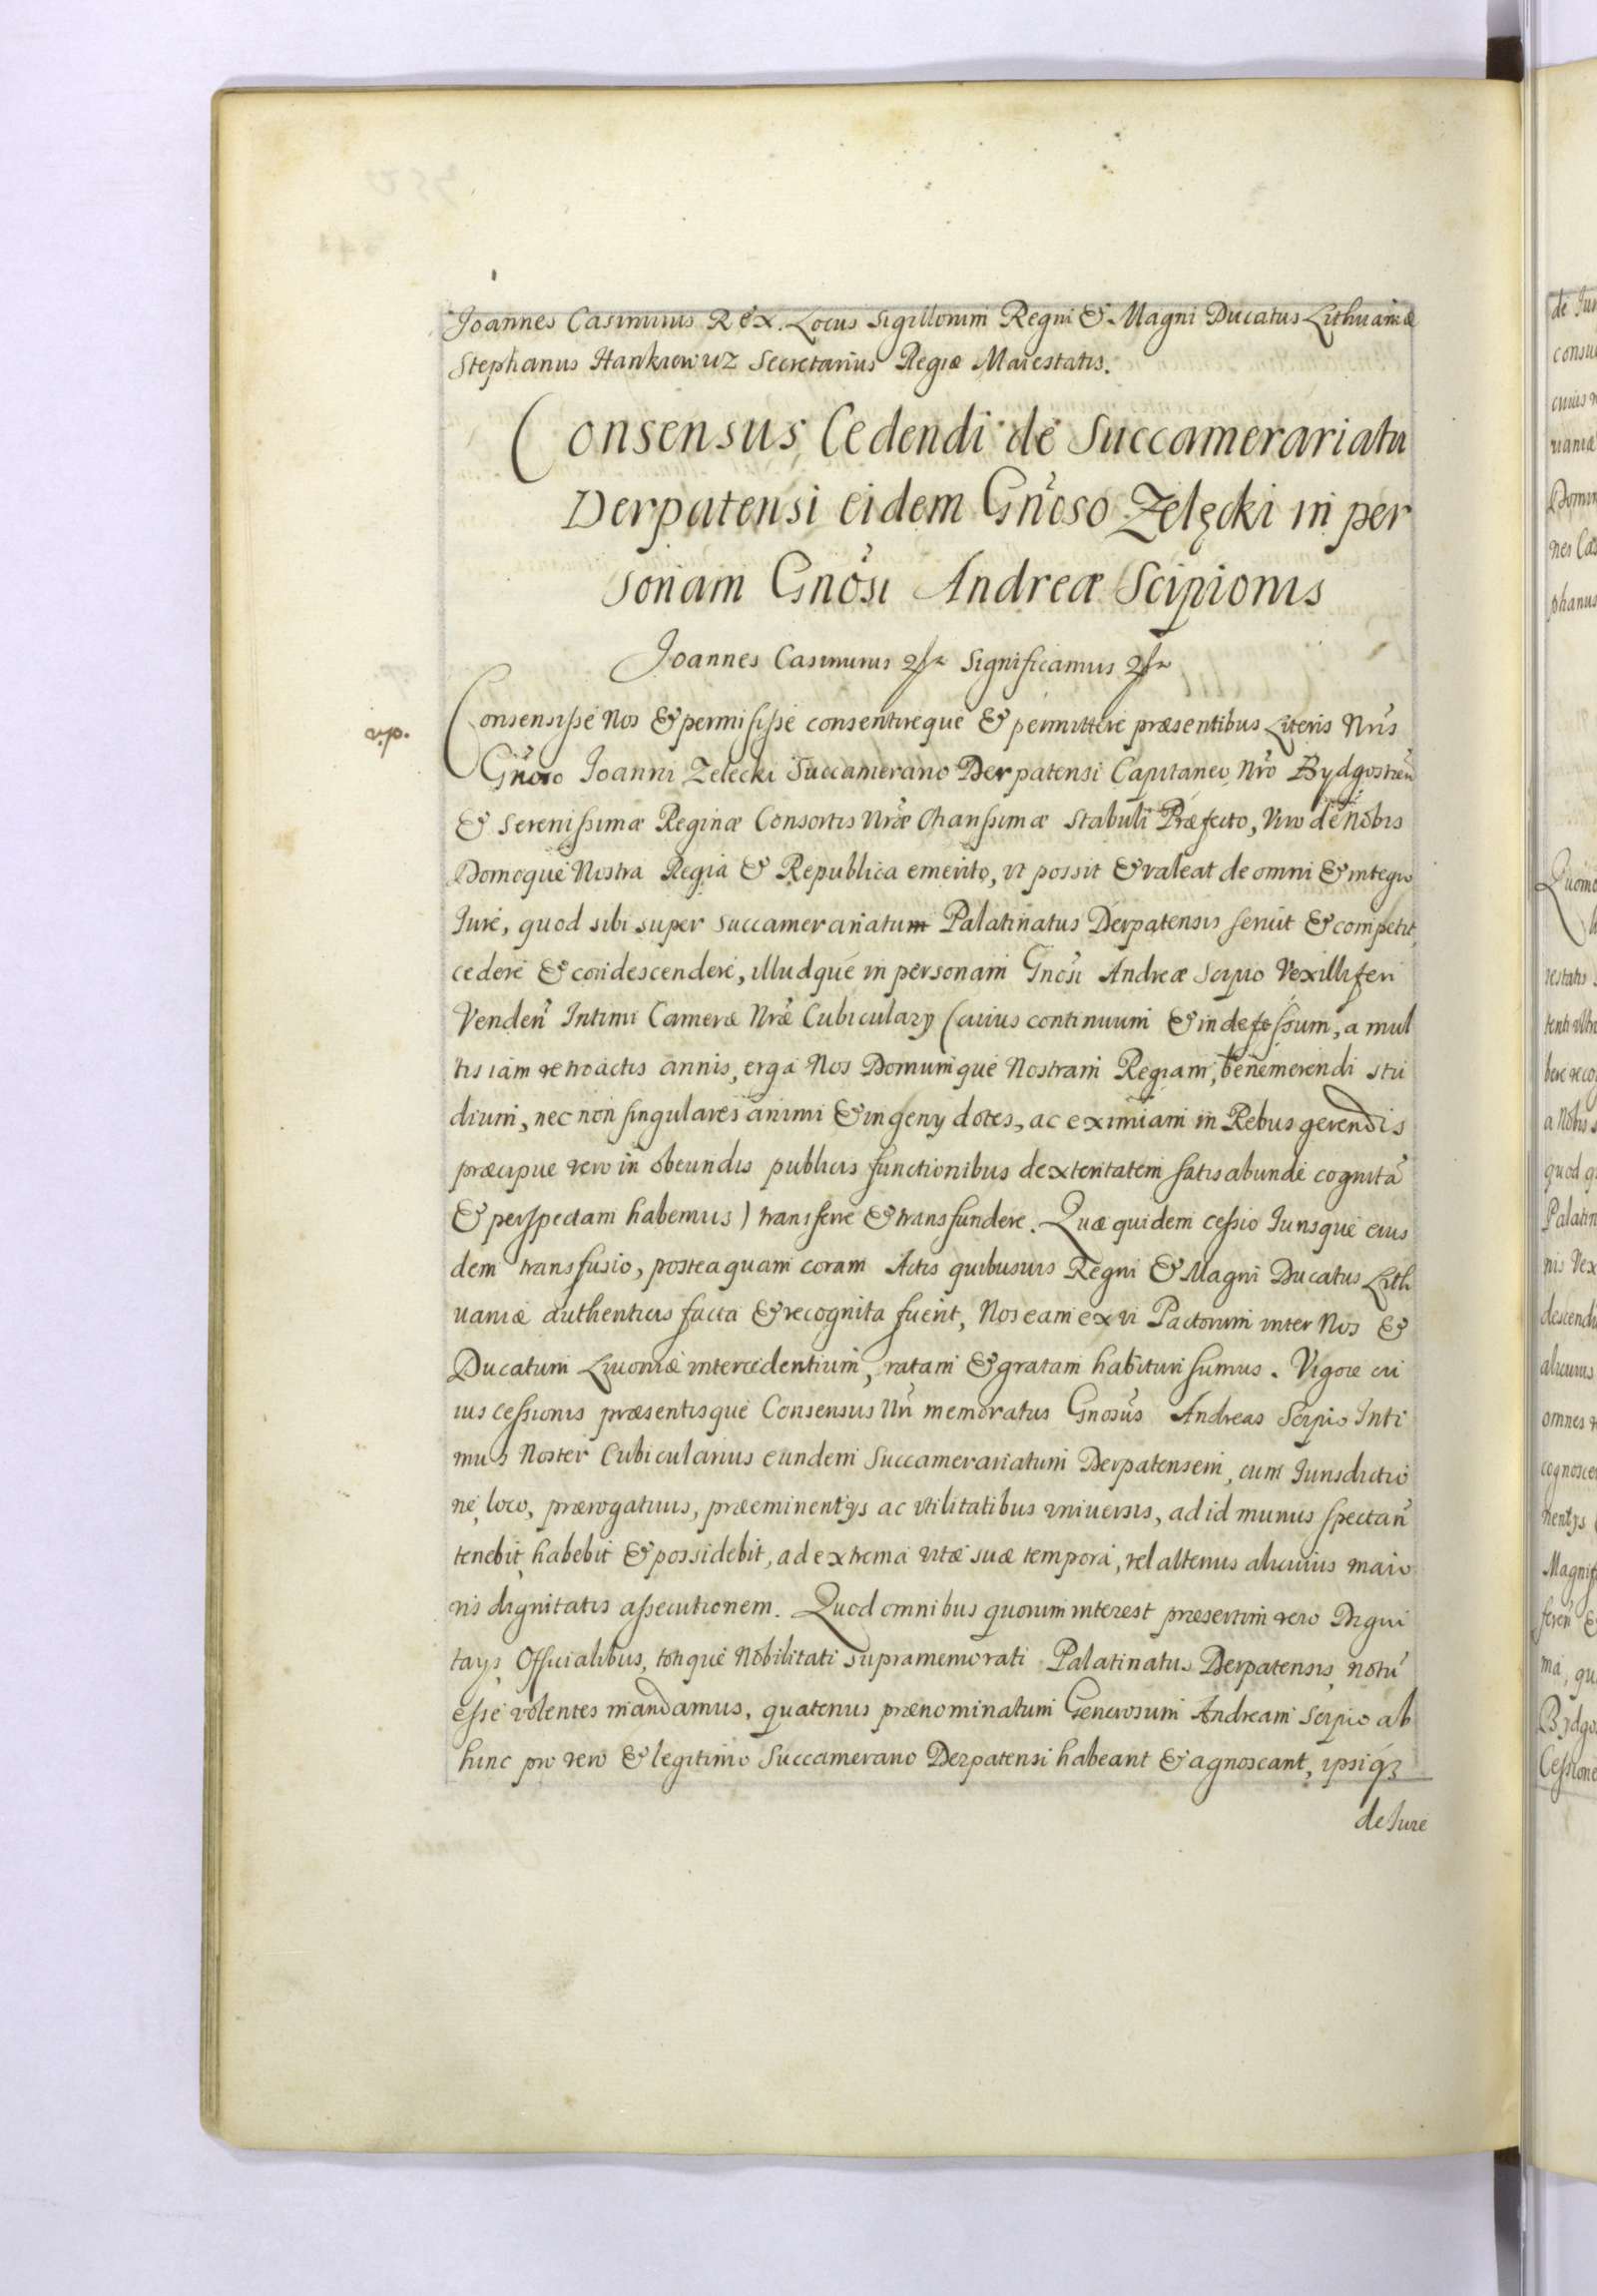 Joannes Casimirus Rex. Locus Sigillorum Regni & Magni Ducatus Lithuaniæ
Stephanus Hankiewicz Secretarius Regiæ Maiestatis.
Consensus Cedendi de Succamerariatu
Derpatensi eidem Gnoso Zelęcki in per
sonam Gnosi Andreæ Scipionis
Joannes Casimirus Significamus
v.p.
Consensisse Nos & permisisse consentireque & permittere præsentibus Literis Nris
Gnoso Joanni Zelecki Succamerario Derpatensi Capitaneo Nro Bydgostien
& Serenissimæ Reginæ Consortis Nræ Charissimæ Stabuli Præfecto, Viro de nobis
Domoque Nostra Regia & Republica emerito, vt possit & valeat de omni & integro
Iure, quod sibi super Succamerariatum Palatinatus Derpatensis seruit & competit,
cedere & condescendere, illudque in personam Gnosi Andreæ Scipio Vexilliferi
Venden Intimi Cameræ Nræ Cubicularij (cuius continuum & indefessum, a mul
tis iam retroactis annis, erga Nos Domumque Nostram Regiam, benemerendi stu
dium, nec non singulares animi & ingenij dotes, ac eximiam in Rebus gerendis
præcipue vero in obeundis publicis functionibus dexteritatem satis abunde cognitã
& perspectam habemus) transferre & transfundere. Quæ quidem cessio Iurisque eius
dem transfusio, posteaquam coram Actis quibusuis Regni & Magni Ducatus Lith
uaniæ authenticis facta & recognita fuerit, Nos eam ex vi Pactorum inter Nos &
Ducatum Liuoniæ intercedentium, ratam & gratam habituri sumus. Vigore cu
ius cessionis præsentisque Consensus Nri memoratus Gnosus Andreas Scipio Inti
mus Noster Cubicularius eundem Succamerariatum Derpatensem, cum Iurisdictio
ne, loco, prærogatiuis, præeminentijs ac vtilitatibus vniuersis, ad id munus spectan
tenebit, habebit & possidebit, ad extrema vitæ suæ tempora, vel altenus alicuius maio
ris dignitatis assecutionem. Quod omnibus quorum interest præsertim vero Digni
tarijs, Officialibus, totique Nobilitati supramemorati Palatinatus Derpatensis, notũ
esse volentes mandamus, quatenus prænominatum Generosum Andream Scipio ab
hinc pro vero & legitimo Succamerario Derpatensi habeant & agnoscant, ipsiq3
de Iure